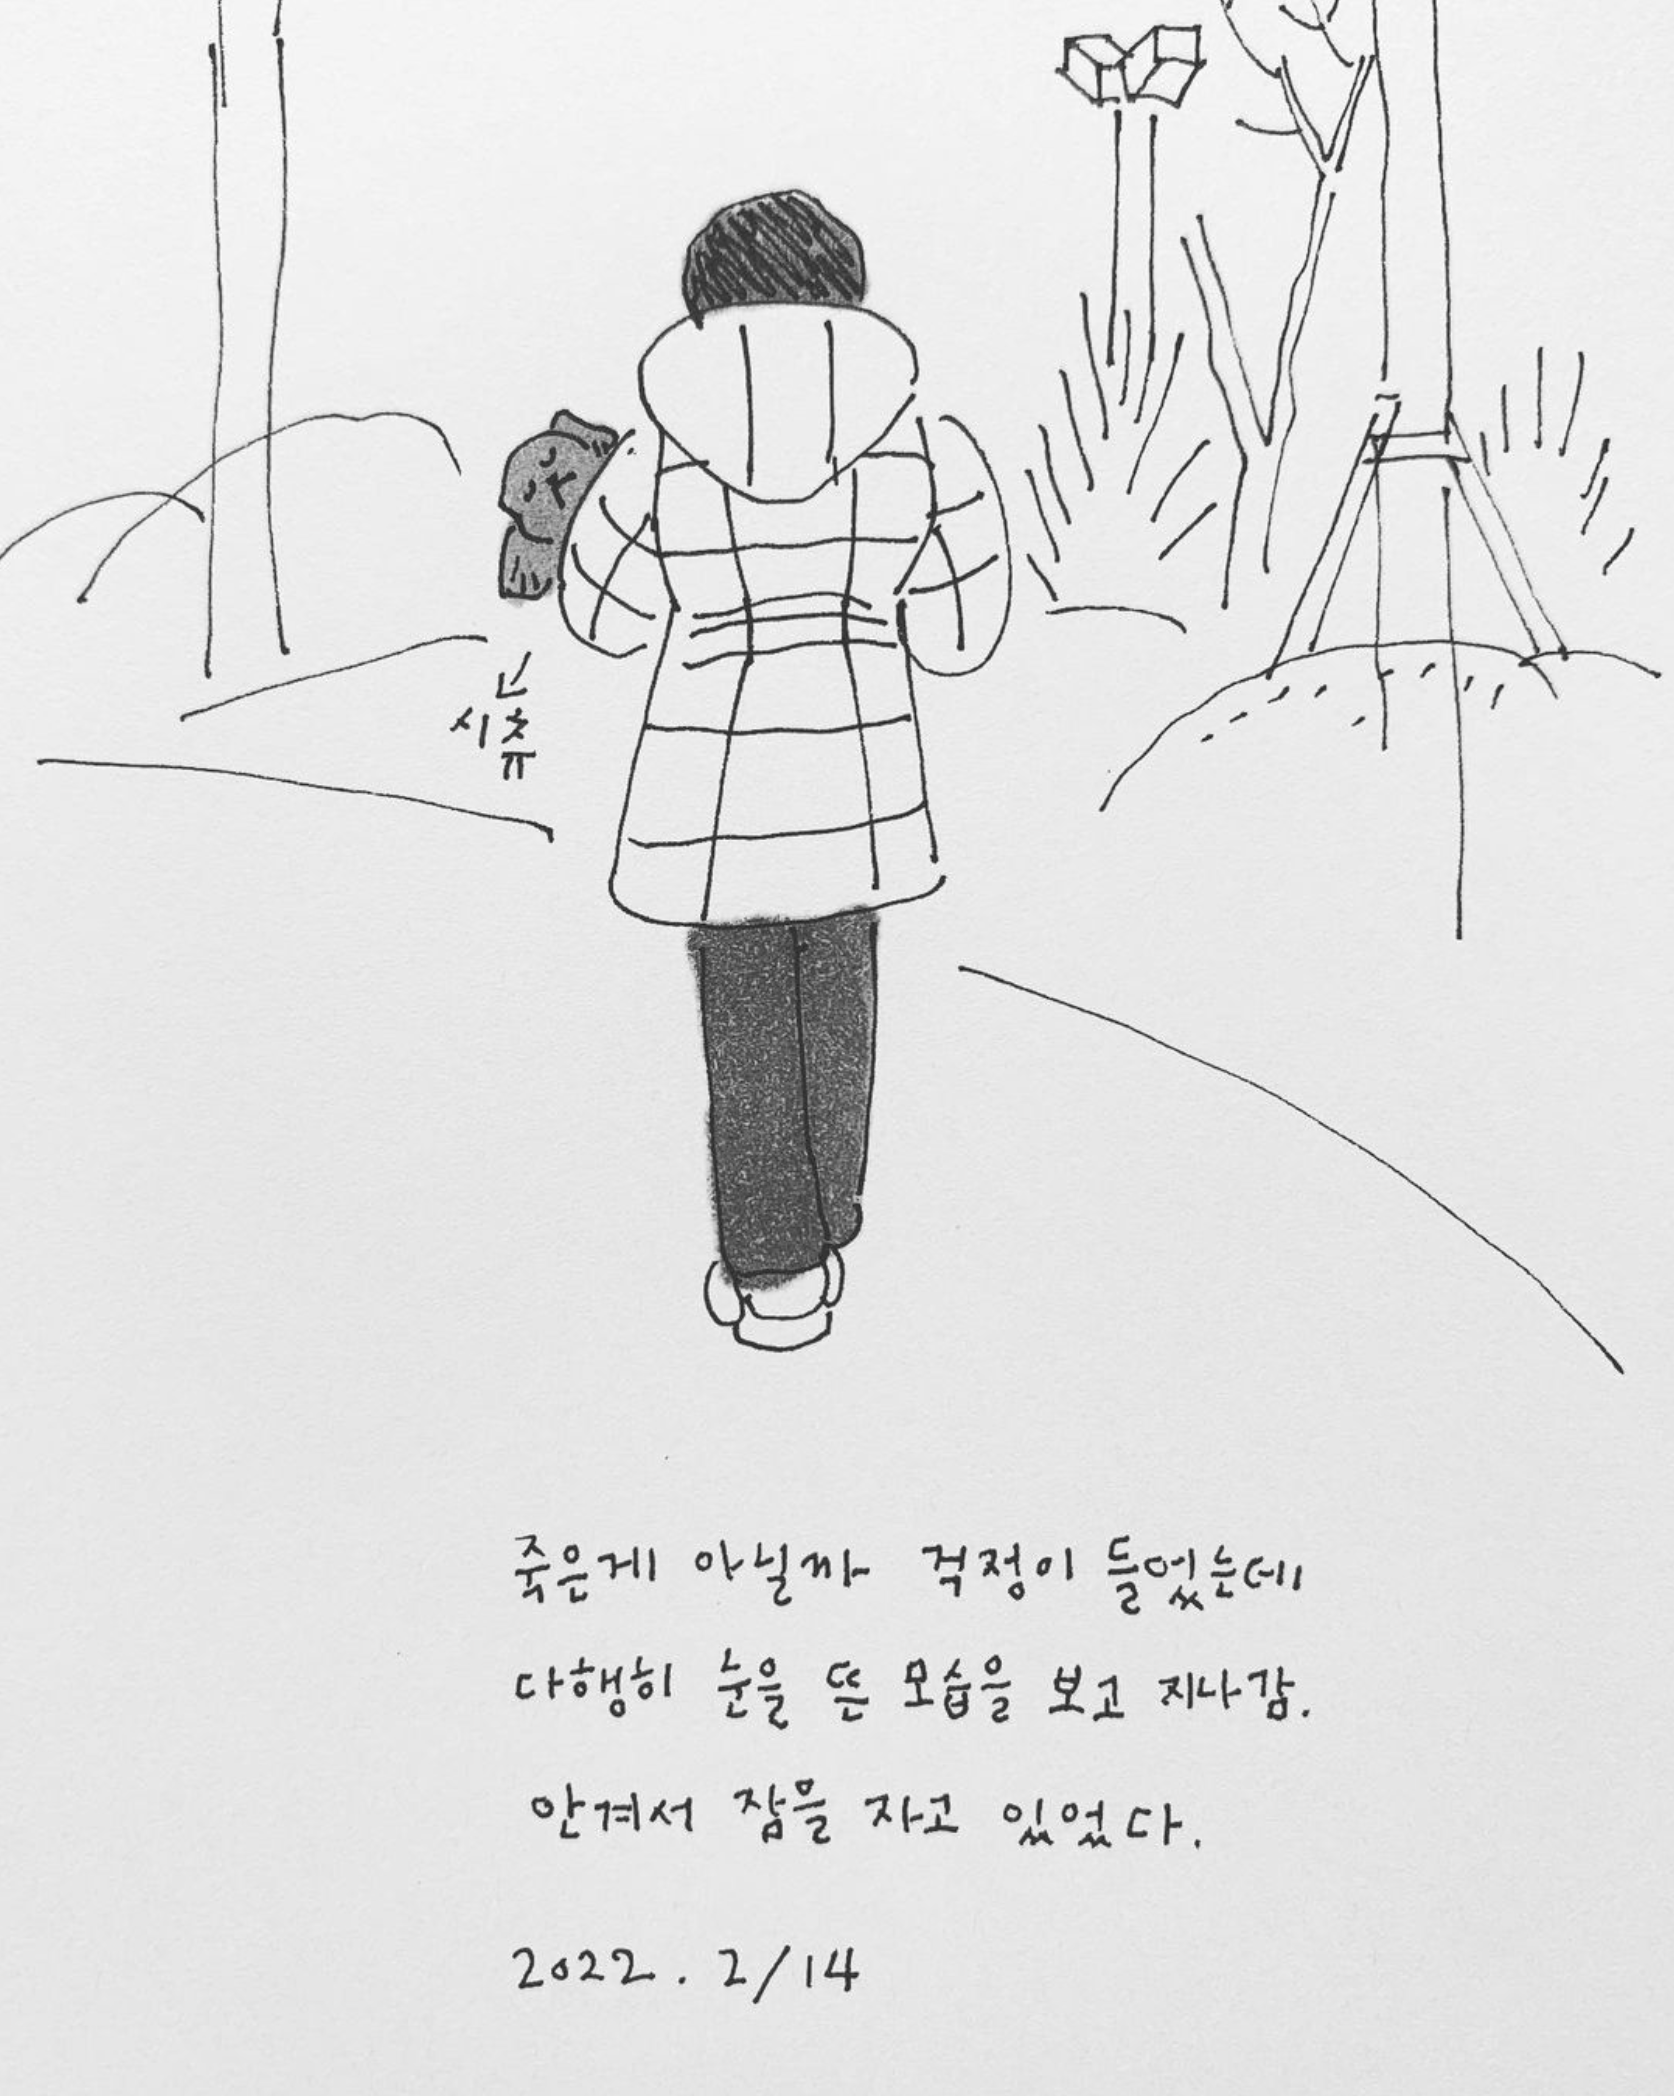 시츄
죽은게 아닐까 걱정이 들었는데
다행히 눈을 뜬 모습을 보고 지나감.
안겨서 잠을 자고 있었다.
2022. 2/14